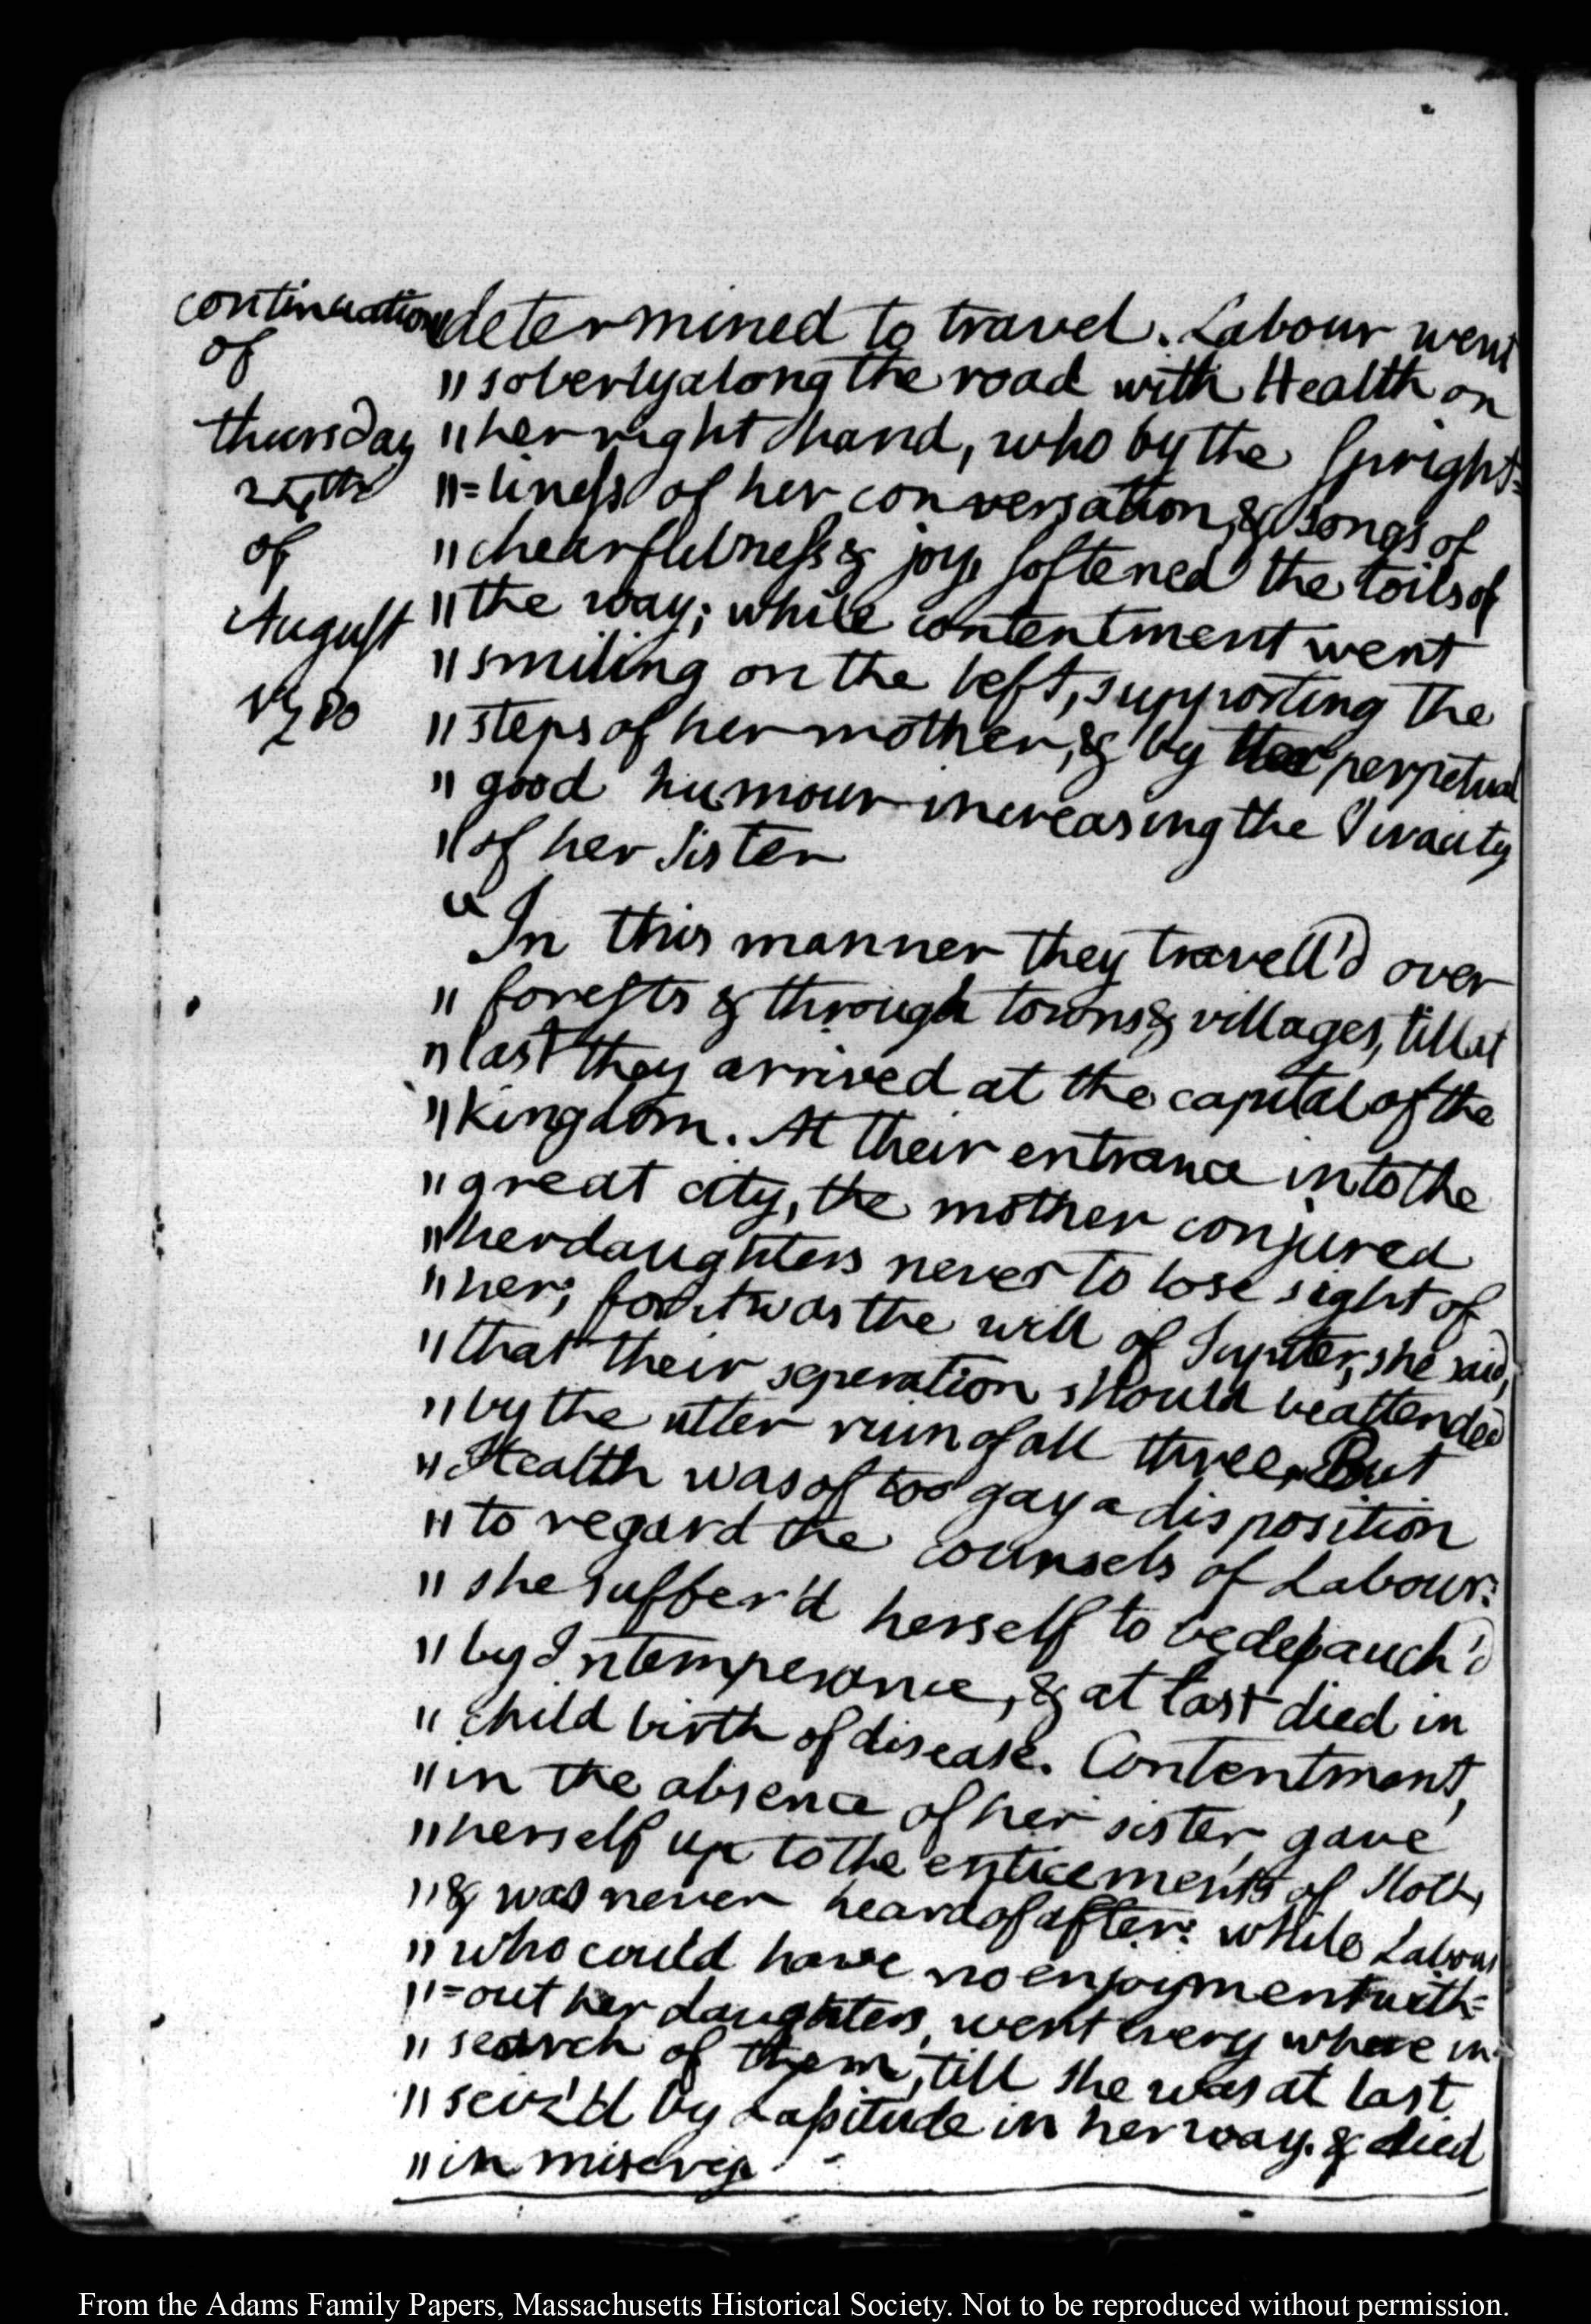 continuation
of
thursday
of
August
1780
"determined to travel. Labour went
"soberly along the road with Health on
"her right hand, who by the Spright-
"=liness of her conversation, & songs of
"chearfulness & joy, softened the toils of
"the way; while contentment went
"smiling on the left, supporting the
"steps of her mother, & by her perpetual
"good humour increasing the Vivacity
"of her Sister
"In this manner they travell'd over
"forests & through towns & villages, till at
"last they arrived at the capital of the
"Kingdom. At their entrance into the
"great city, the mother conjured
"her daughters never to lose sight of
"her; for it was the will of Jupiter, she said,
"that their seperation should be attended
"by the utter ruin of all three. But
"Health was of too gay a disposition
"to regard the counsels of Labour:
"she suffer'd herself to be debauch'd
"by Intemperance, & at last died in
"child birth of disease. Contentment,
"in the absence of her sister, gave
"herself up to the enticements of Sloth,
"& was never heard of after: while Labour
"who could have no enjoyment with=
"=out her daughters, went every where in
"search of them, till she was at last
"seiz'd by Lassitude in her way, & died
"in misery.
From the Adams Family Papers, Massachusetts Historical Society. Not to be reproduced without permission.